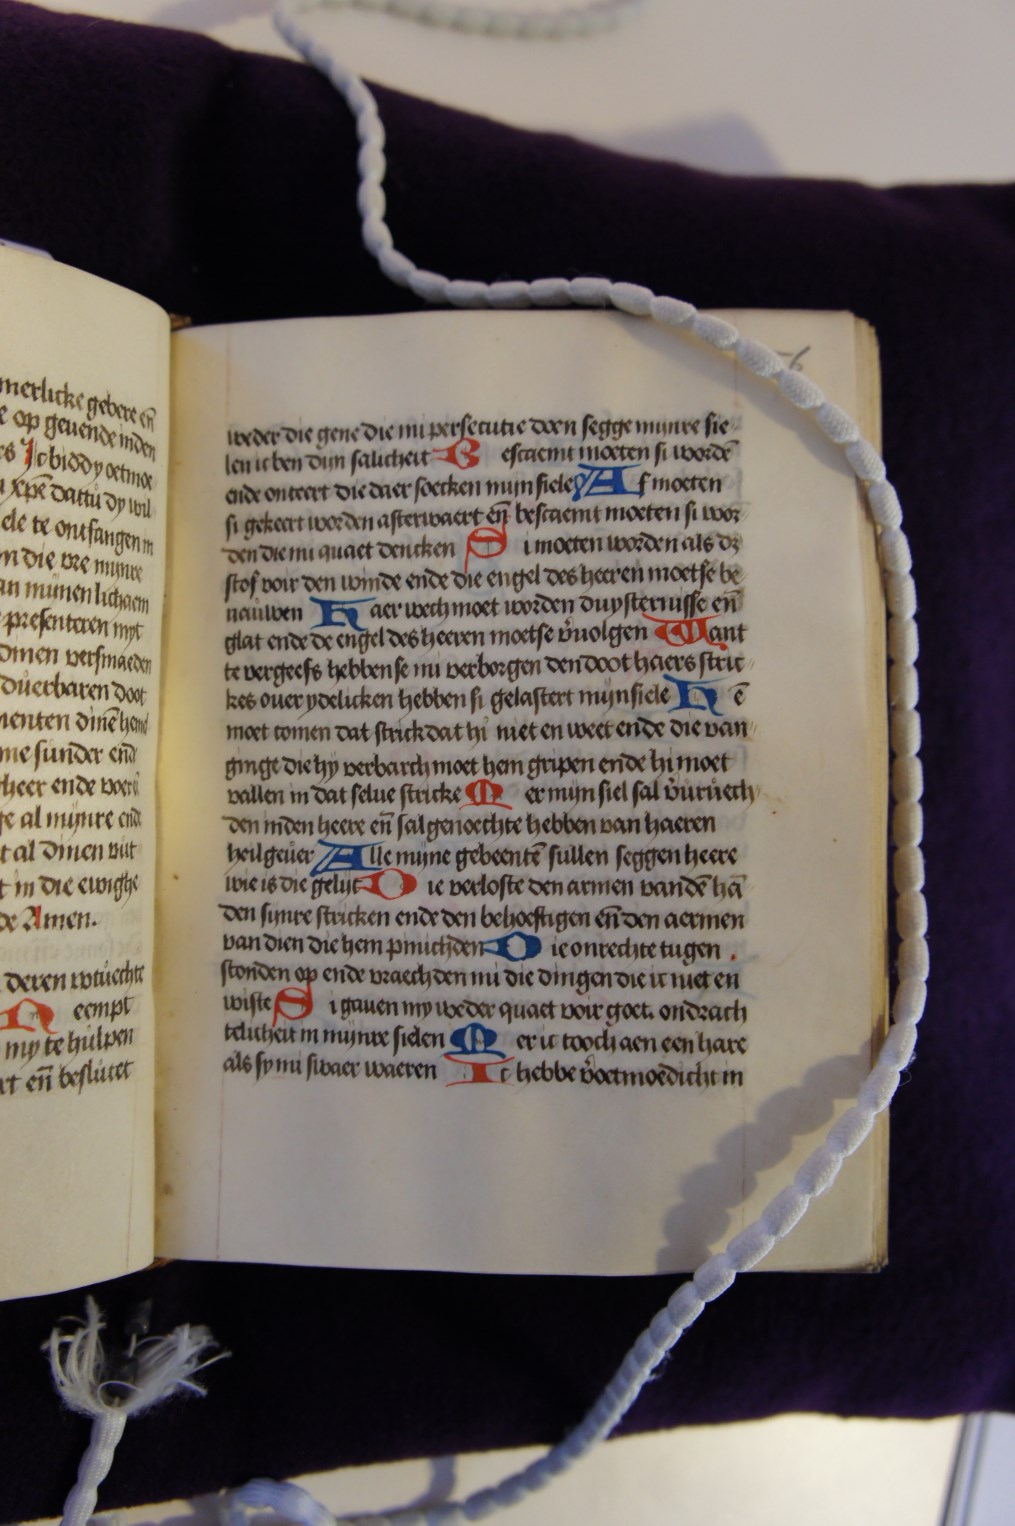 merlicke gebere eñ
e op geuende inden
rs Ic biddy oetmoe
u xpē dattu dy wil
ele te ontfangen in
n die vre mynre
an mijnen lichaem
presenteren myt
dinen versmaeden
duerbaren doot
menten dinē
me sunder end
heer ende
ge al mijnre end
t al dinen
t in die ewighe
de Amen.
deren
Neempt
my te hulpen
rt eñ beslutet
56
weder die gene die mi persecutie doen segge mynre sie
len ic ben dijn salicheit Bescaemt moeten si wordē
ende onteert die daer soecken mijn siele Af moeten
si gekeert worden afterwaert eñ bescaemt moeten si wor
den die mi quaet dencken Si moeten worden als dz
stof voir den winde ende die engel des heeren moetse be
nauwen Haer wech moet worden duysternisse eñ
glat ende de engel des heeren moetse v̄uolgen Want
te vergeefs hebbense mi verborgen den doot haers stric
kes ouer ydelicken hebben si gelastert mijn siele Hē
moet comen dat strick dat hi niet en weet ende die van
ginge die hy verbarch moet hem gripen ende hi moet
vallen in dat selue stricke Mer mijn siel sal v̄uruech
den inden heere eñ sal genoechte hebben van haeren
heilgeuer Alle mijne gebeentē sullen seggen heere
wie is die gelijc Die verloste den armen vandē hā
den sijnre stricken ende den behoeftigen eñ den aermen
van dien die hem pmichdden Die onrechte tugen
stonden op ende vraechden mi die dingen die ic niet en
wiste Si gauen my weder quaet voir goet. ondrach
telicheit in mijnre sielen Mer ic tooch aen een hare
als sy mi swaer waeren Ic hebbe v̄oetmoedicht in